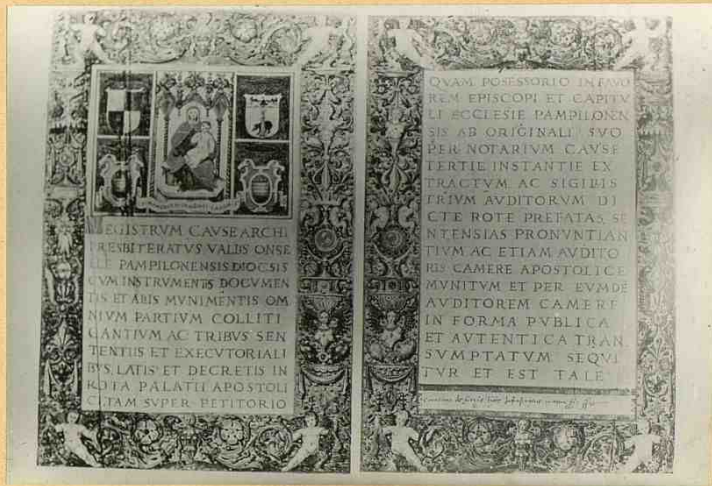 REGISTRVM CAVSE ARCHI
PRESBITERATVS VALLIS ONSE
LLE PAMPILONENSIS DIOCSIS
CVM INSTRVMENTIS DOCVMEN
TIS ET ALIIS MVNIMENTIS OM
NIVM PARTIVM COLLITI
GANTIVM AC TRIBVS SEN
TENTIIS ET EXECVTORIALI
BVS, LATIS ET DECRETIS IN
ROTA PALATII APOSTOLI
CI TAM SVPER PETITORIO
QVAM POSESSORIO IN FAVO
REM EPISCOPI ET CAPITV
LI ECCLESIE PAMPILONEN
SIS AB ORIGINALI SVO
PER NOTARIVM CAVSE
TERTIE INSTANTIE EX
TRACTVM AC SIGILIS
TRIVM AVDITORVM DI
CTE ROTE PREFATAS SE
NTENSIAS PRONVNTIAN
TIVM AC ETIAM AVDITO
RIS CAMERE APOSTOLICE
MVNITVM ET PER EVMDE
AVDITOREM CAMERE
IN FORMA PVBLICA
ET AVTENTICA TRAN
SVMPTATVM SEQVI
TVR ET EST TALE